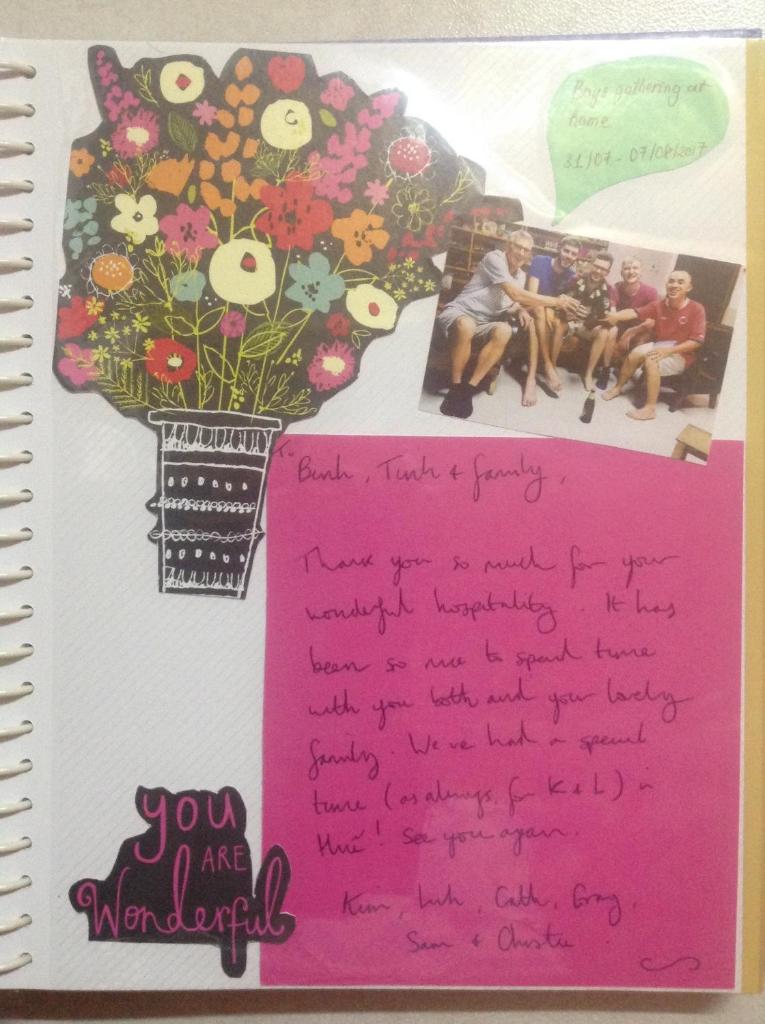 Boys gathering at
home
31/07 - 07/08/2017
To
Binh, Tinh & family,
Thank you so much for your
wonderful hospitality. It has
been so nice to spend time
with you both and your lovely
family. We've had a special
time (as always, for K & L) in
Huế! See you again.
Kim, Luh, Cath, Gray,
Sam &
YOU
ARE
Wonderful